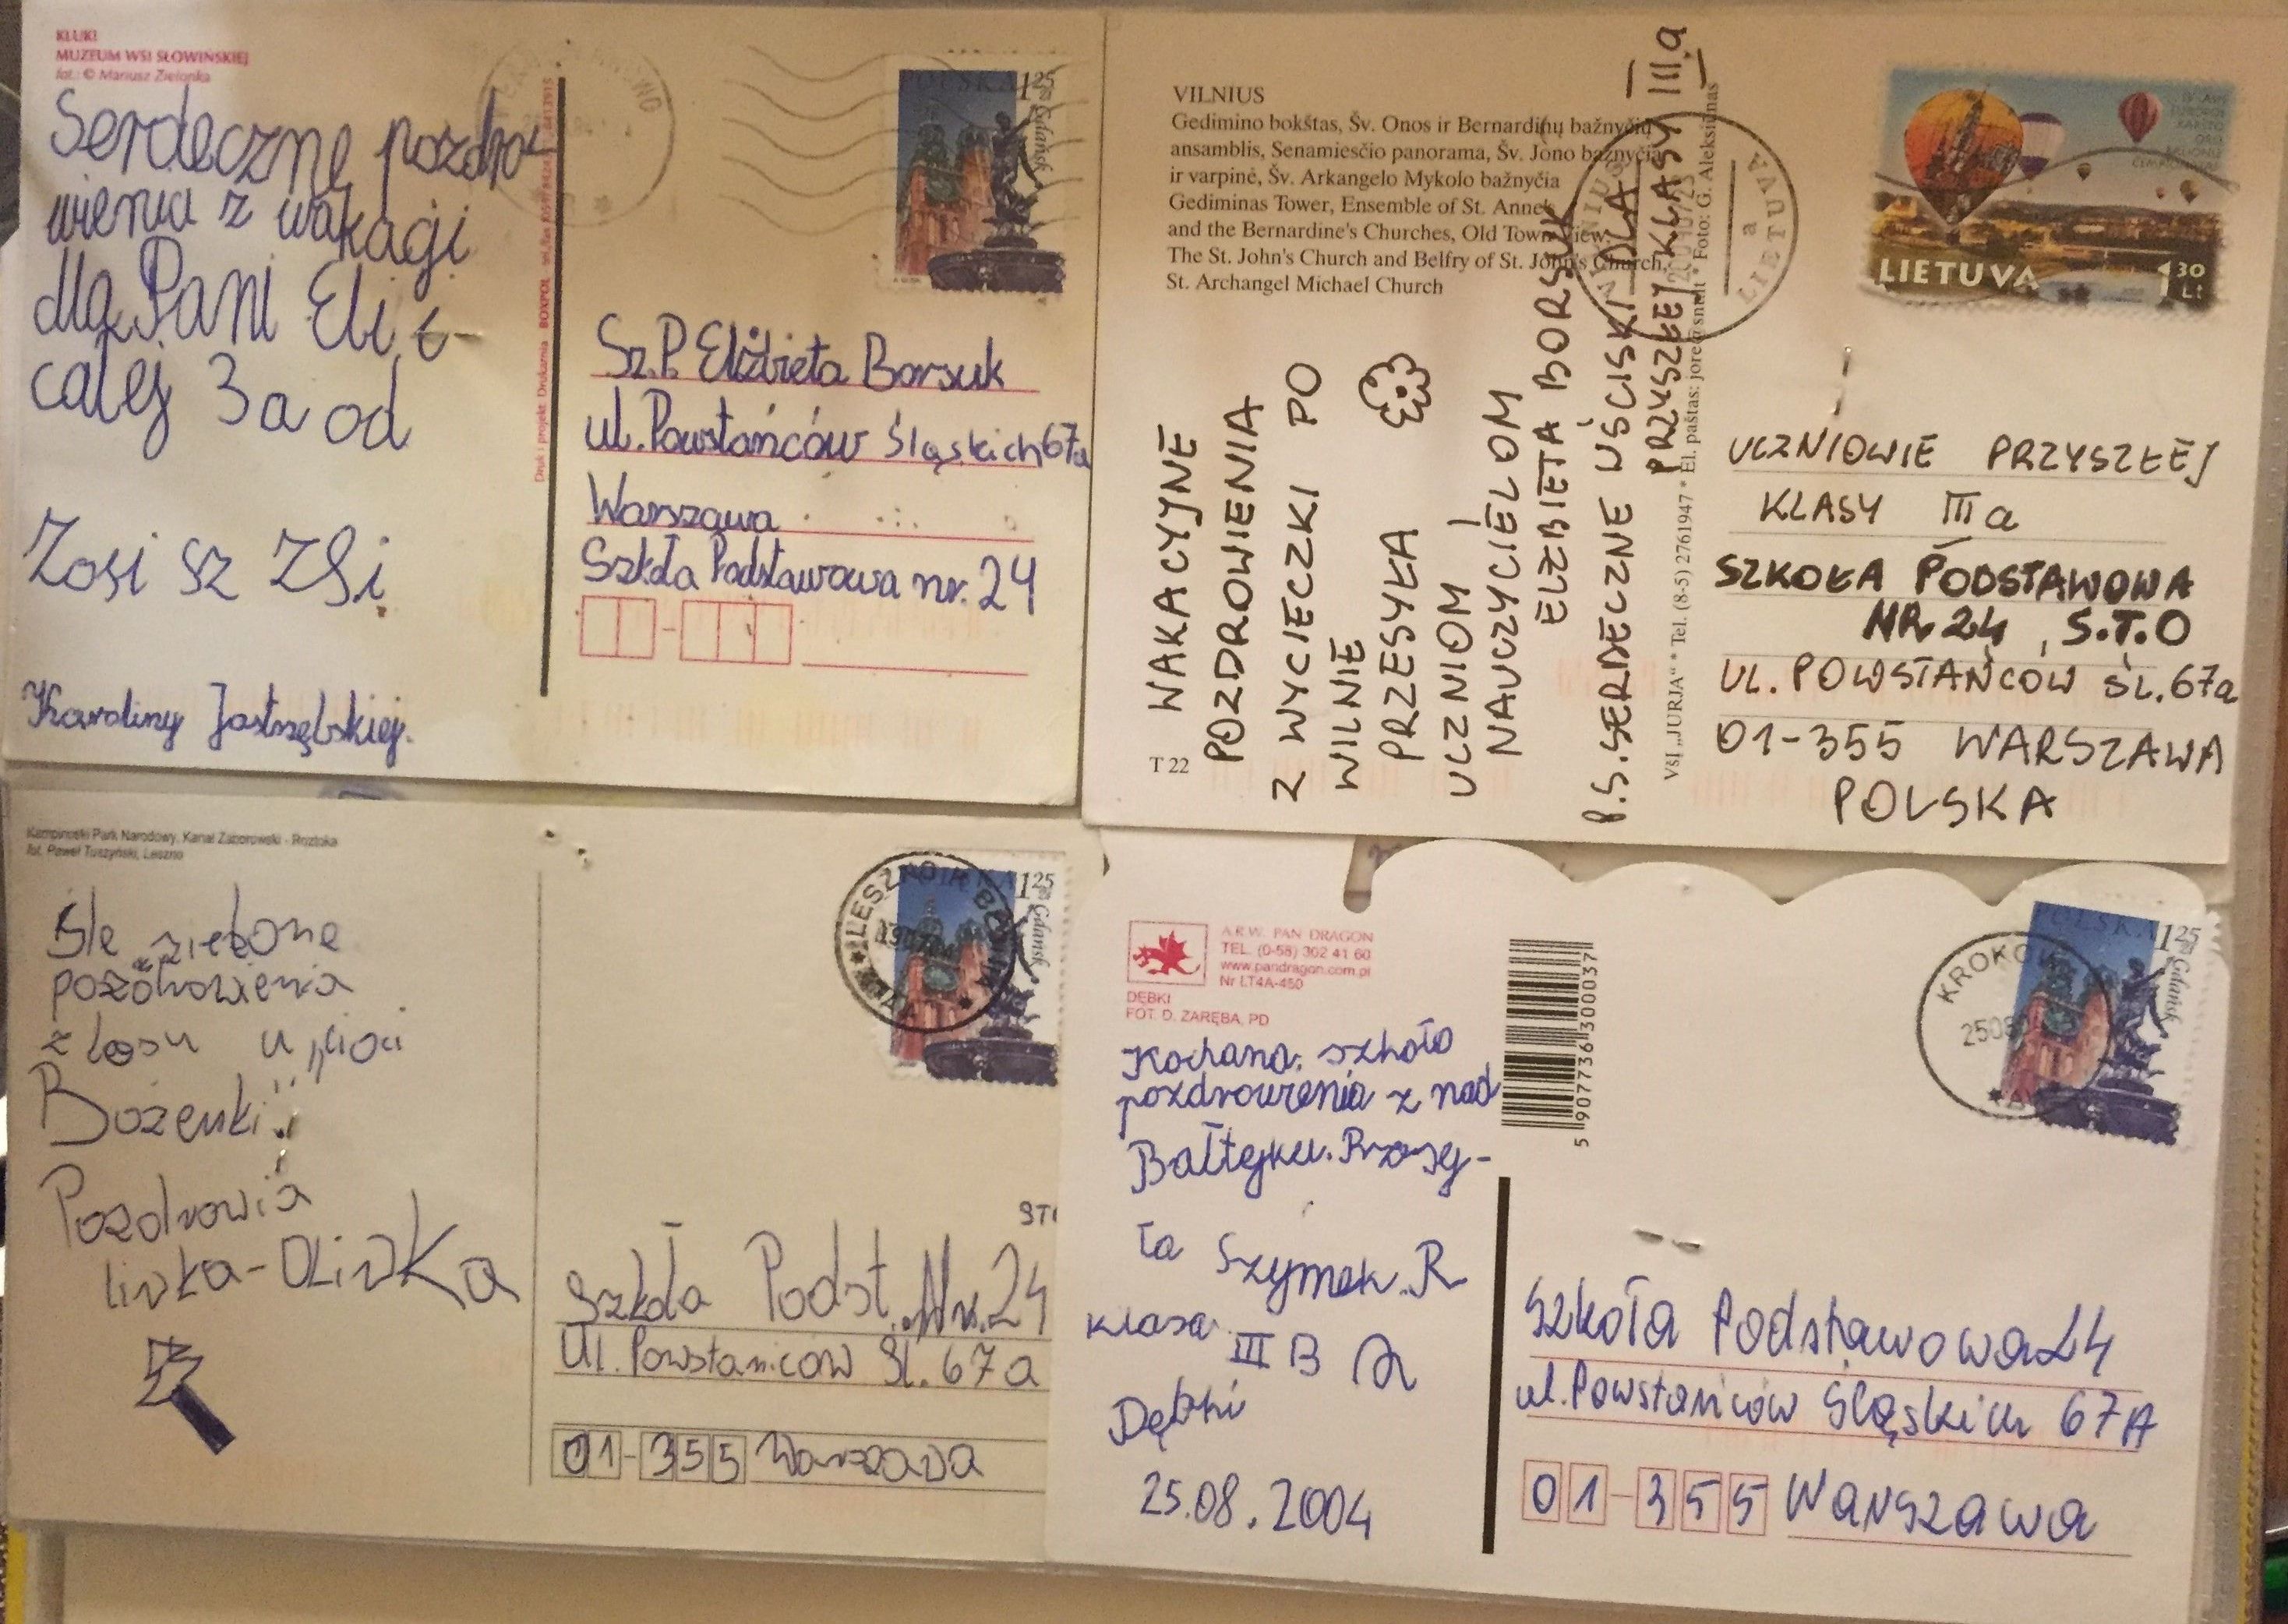 KLUKI
MUZEUM WSI SŁOWIŃSKIEJ
fot.: © Mariusz Zielonka
Serdeczne pozdro
wienia z wakagi
dla Pani Eli i
całej 3a od
Zosi
Karoliny Jastrzębskiej.
Druk i projekt Drukarnia BOXPOL
POLSKA 1 25
Gdańsk
Sz.P. Elżbieta Borsuk
ul. Powstańców Śląskich 67a
Warszawa
Szkoła Podstawowa nr. 24
VILNIUS
Gedimino bokštas, Šv. Onos ir Bernardinų bažnyčių
ansamblis, Senamiesčio panorama, Šv. Jono bažnyčia
ir varpinė, Šv. Arkangelo Mykolo bažnyčia
Gediminas Tower, Ensemble of St. Anne's
and the Bernardine's Churches, Old Town View,
The St. John's Church and Belfry of St. John's Church,
St. Archangel Michael Church
WAKACYJNE
POZDROWIENIA
Z WYCIECZKI PO
WILNIE
PRZESYŁA
UCZNIOM I
NAUCZYCIELOM
ELŻBIETA BORSUK
P.S. SERDECZNE UŚCISKI DLA
PRZYSZŁEJ KLASY III a
T 22
VšĮ „JURJA" * Tel. (8-5) 2761947 * El. paštas: jore@snault * Foto: G. Aleksiūnas
VILNIUS
a
LIETUVA
LIETUVA 1 30 Lt
UCZNIOWIE PRZYSZŁEJ
KLASY III a
SZKOŁA PODSTAWOWA
NR 24, S.T.O
UL. POWSTAŃCÓW ŚL. 67a
01-355 WARSZAWA
POLSKA
Kampinoski Park Narodowy, Kanał Zaborowski - Roztoka
fot. Paweł Tuszyński, Leszno
Ślę zielone
pozdrowienia
z lasu u „cioci
Bożenki"
Pozdrawia
liwka-OLiwKa
LESZNO K. BŁONIA
POLSKA 1 25
Gdańsk
STO
Szkoła Podst. Nr. 24
Ul. Powstańców Śl. 67a
01-355 Warszawa
A.R.W. PAN DRAGON
TEL. (0-58) 302 41 60
www.pandragon.com.pl
Nr LT4A-450
DĘBKI
FOT. D. ZARĘBA, PD
Kochana szkoło
pozdrowienia z nad
Bałtyku. Przesy-
ła Szymek. R
klasa III B
Dębki
25.08.2004
5 907736 300037
KROKOWA
POLSKA 1 25
Gdańsk
Szkoła Podstawowa 24
ul. Powstańców Śląskich 67A
01-355 Warszawa